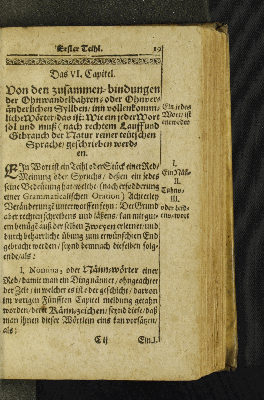 Erster Teihl. 19
Das VI. Capitel.
Von den zusammen-bindungen
der Ohnwandelbahren/ oder Ohnver-
änderlichen Syllben/ inn vollenkomm-
liche Wörter/ das ist: Wie ein jeder Wort
sol und muß (nach rechtem Lauff und
Gebrauch der Natur reiner teütschen
Sprache/ geschrieben werd-
en.
Ein Wort ist ein Teihl oder Stück einer Red/
Meinung oder Spruchs/ deßen ein jedes
seine Bedeütung hat welche (nach erforderung
einer Grammaticalischen Oration)
Veränderung unterworffen seyn: Der Grund
aber rechten schreibens und läßens/ kan mit gut-
em benügt auß der selben Zweyen erlernet/ und
durch beharrliche übung zum erwünschten End
gebracht werden/ seynd demnach dieselben folg-
ende/als:
I. Nomina; oder Nänn-wörter einer
Red/ damit man ein Ding nännet/ ohngeachtet
der Zeit/ in welcher es ist oder geschicht/ darvon
im vorigen Fünfften Capitel meldung getahn
worden/ deren Känn-zeichen/ seynd diese/ daß
man ihnen dieser Wörtlein eins kan vorsätzen/
als:
Cij Ein.1.
Ein jedes
Wort/ ist
entweder
I.
Ein Näñ-
II.
III.
oder